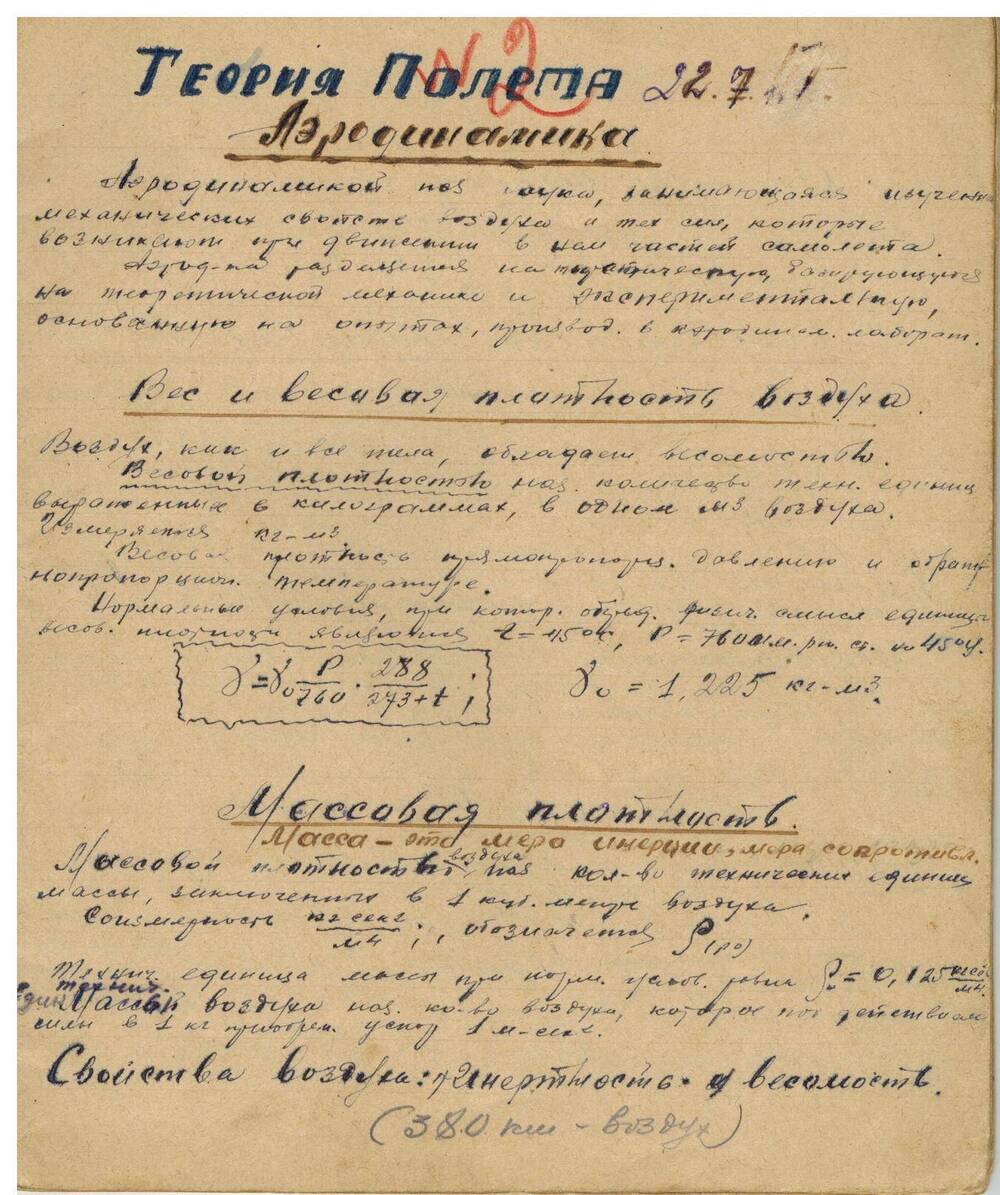 №2
Теория Полета 22.7.
Аэродинамика
Аэродинамикой наз наука, занимающаяся изучен
механических свойств воздуха и тех сил, которые
возникают при движении в нем частей самолета.
Аэрод-ка разделяется на базирующуюся
на теоретической механике и экспериментальную,
основанную на опытах, производ. в аэродинам. лаборат.
Вес и весовая плотность воздуха
Воздух, как и все тела, обладает весомостью.
Весовой плотностью наз. количество техн. единиц
выраженных в килограммах, в одном м³ воздуха.
Измеряется кг-м³
Весовая плотность прямопропорц. давлению и обрат
нопропорцион. температуре.
Нормальные условия, при котор. смысл единицы
весов. плотности являются t = 15°с, P = 760 мм. рт. ст. на 45°
γ = γ₀ P/760 · 288/273+t ;
γ₀ = 1,225 кг-м³.
Массовая плотность.
Масса - это мера инерции, мера сопротивл.
Массовой плотностью воздуха наз кол-во технических единиц
массы, заключенных в 1 куб. метре воздуха.
Соизмерность кг сек²/м4 ; обозначается ρ (ро)
Технич. единица массы при норм. услов. равна ρ₀ = 0,125
технич.
един Массой воздуха наз. ко-во воздуха, которое под действием
силы в 1 кг приобрет. ускор 1 м-сек².
Свойства воздуха: инертность и весомость.
(380 км - воздух)